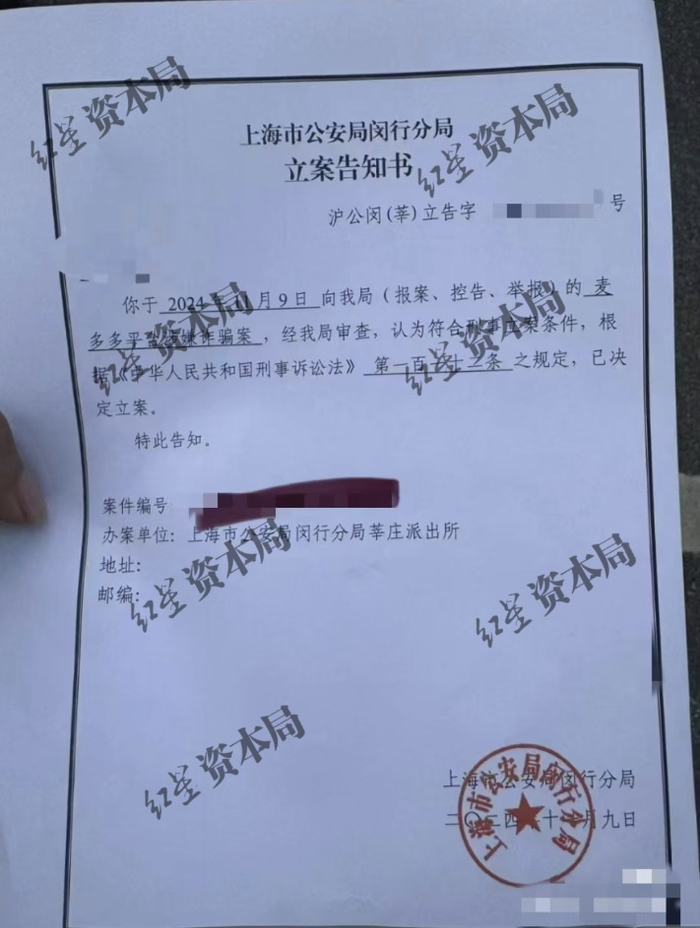 上海市公安局闵行分局
立案告知书
沪公闵(莘)立告字 号
你于 2024年11月9日 向我局(报案、控告、举报)的 麦
多多平台涉嫌诈骗案,经我局审查,认为符合刑事立案条件,根
据《中华人民共和国刑事诉讼法》 第一百一十二条 之规定,已决
定立案。
特此告知。
案件编号
办案单位:上海市公安局闵行分局莘庄派出所
地址:
邮编:
上海市公安局闵行分局
二〇二四年十 月九日
上海市公安局闵行分局
红星资本局
红星资本局
红星资本局
红星资本局
红星资本局
红星资本局
红星资本局